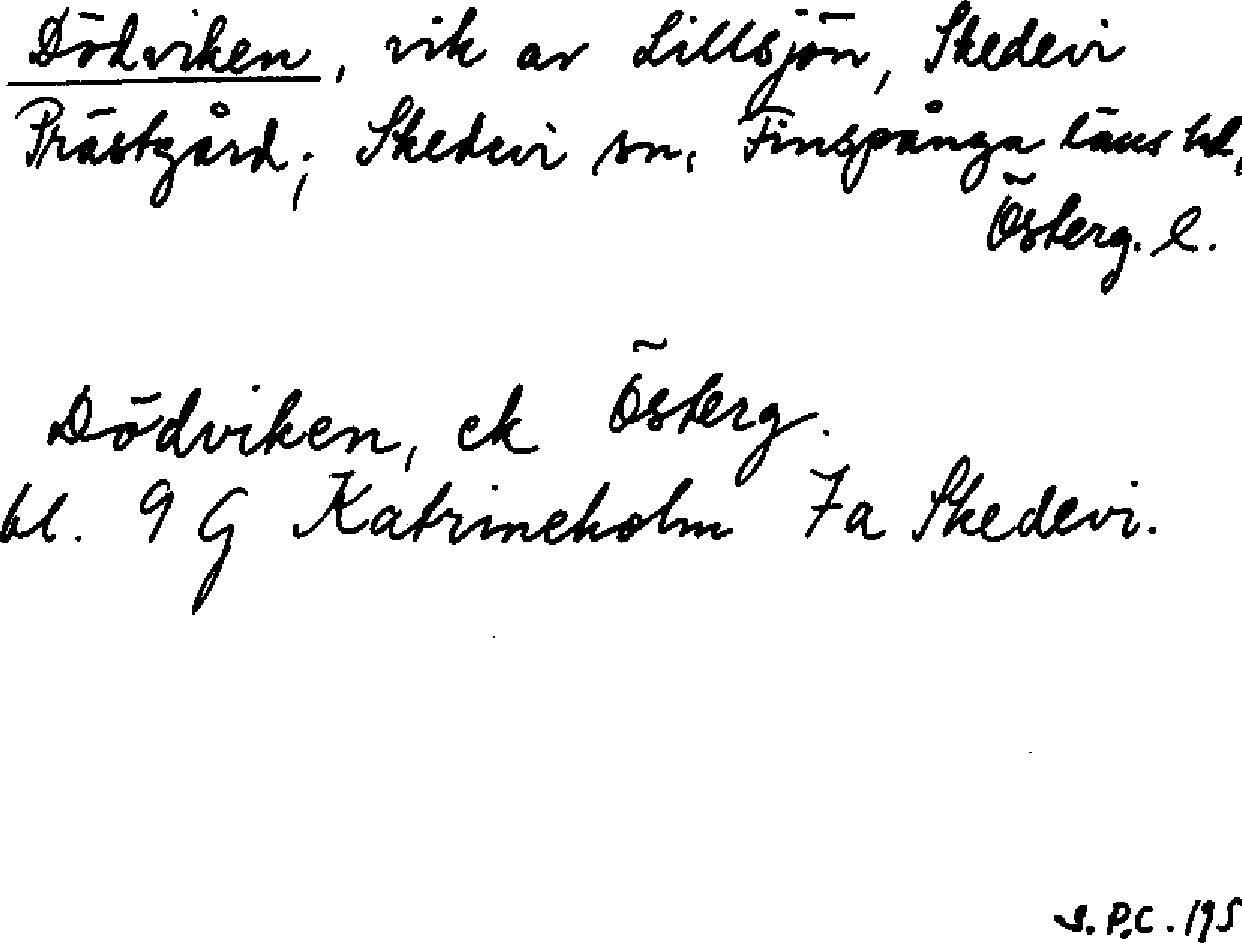 Dödviken, vik av Lillsjön, Skedevi
Prästgård; Skedevi sn, Finspånga läns hd,
Österg. l.
Dödviken, ek Österg.
bl. 9 G Katrineholm 7a Skedevi.
S.P.C. 195